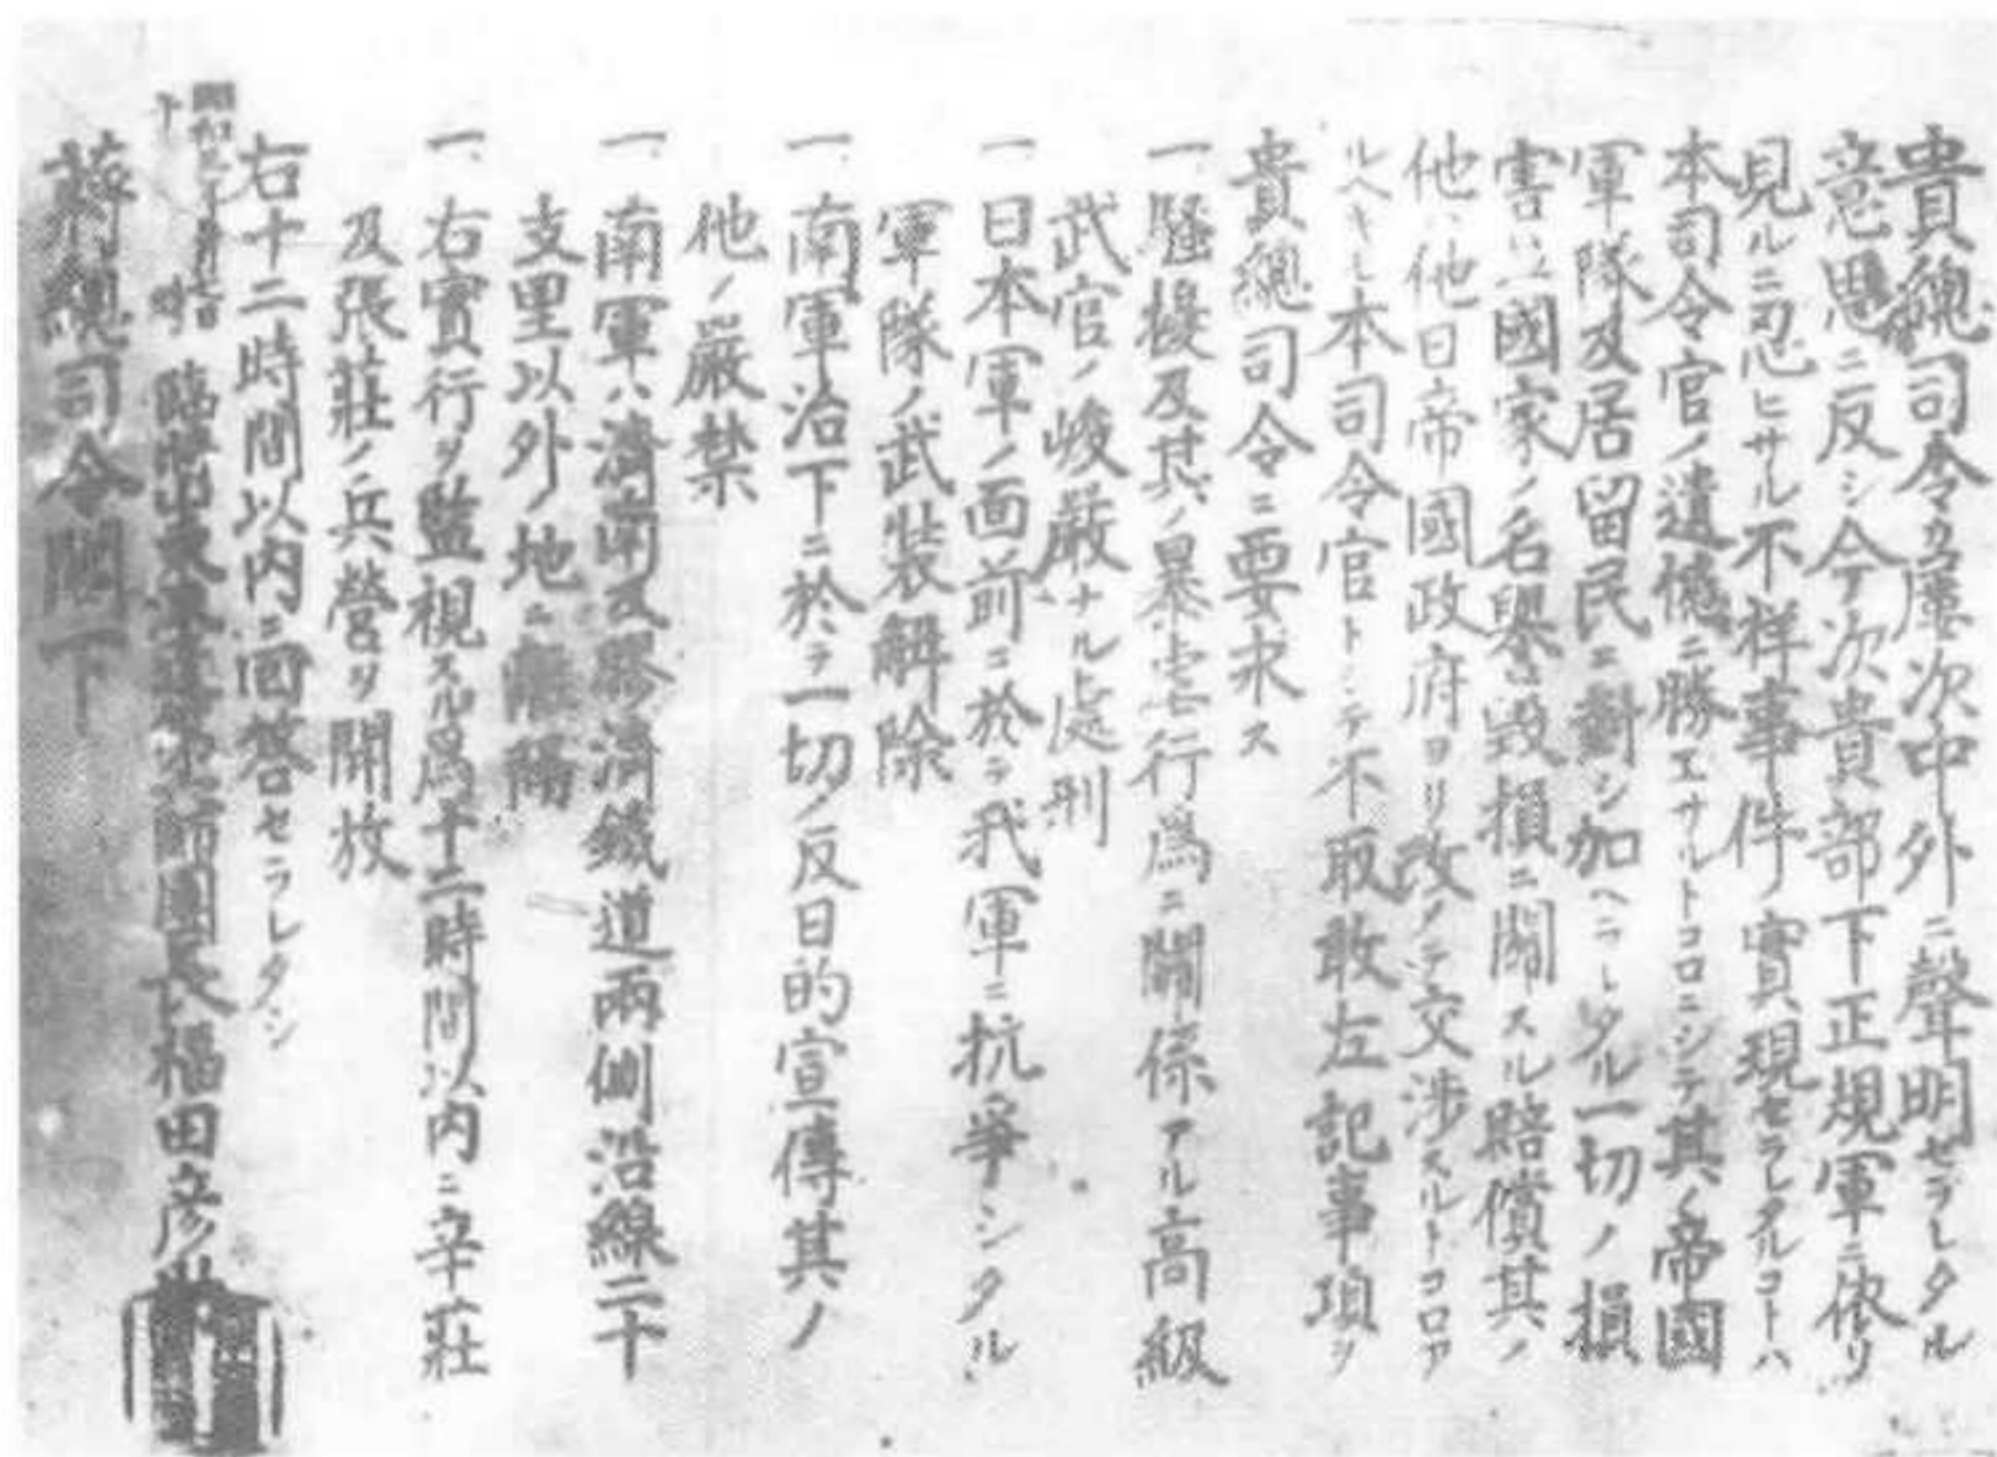 貴總司令カ屢次中外ニ聲明セラレタル
意思ニ反シ今次貴部下正規軍ニ依リ
見ルニ忍ヒサル不祥事件ノ實現セラレタルコトハ
本司令官ノ遺憾ニ勝エサルトコロニシテ其ノ帝國
軍隊及居留民ニ對シ加ヘラレタル一切ノ損
害ハ國家ノ名譽毀損ニ關スル賠償其ノ
他ハ他日帝國政府ヨリ改メテ交渉スルトコロア
ルヘキモ本司令官トシテ不取敢左記事項ヲ
貴總司令ニ要求ス
一、騷擾及其ノ暴虐行爲ニ關係アル高級
武官ノ峻嚴ナル處刑
一、日本軍ノ面前ニ於テ我軍ニ抗爭シタル
軍隊ノ武裝解除
一、南軍治下ニ於テ一切ノ反日的宣傳其ノ
他ノ嚴禁
一、南軍ハ濟南及膠濟鐵道兩側沿線二十
支里以外ノ地ニ隔
一、右實行ヲ監視スル爲十二時間以内ニ辛莊
及張莊ノ兵營ヲ開放
右十二時間以内ニ回答セラレタシ
昭和三年五月
臨時山東派遣第師團長福田彦
蔣總司令閣下